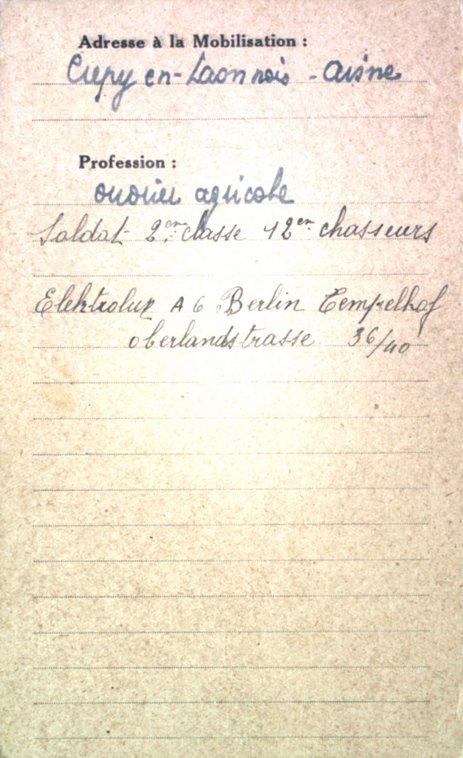 Adresse à la Mobilisation :
Crepy en-Laonnois - Aisne
Profession :
ouvrier agricole
Soldat 2er classe 12er chasseurs
Elektrolux A G Berlin Tempelhof
oberlandstrasse 36/40